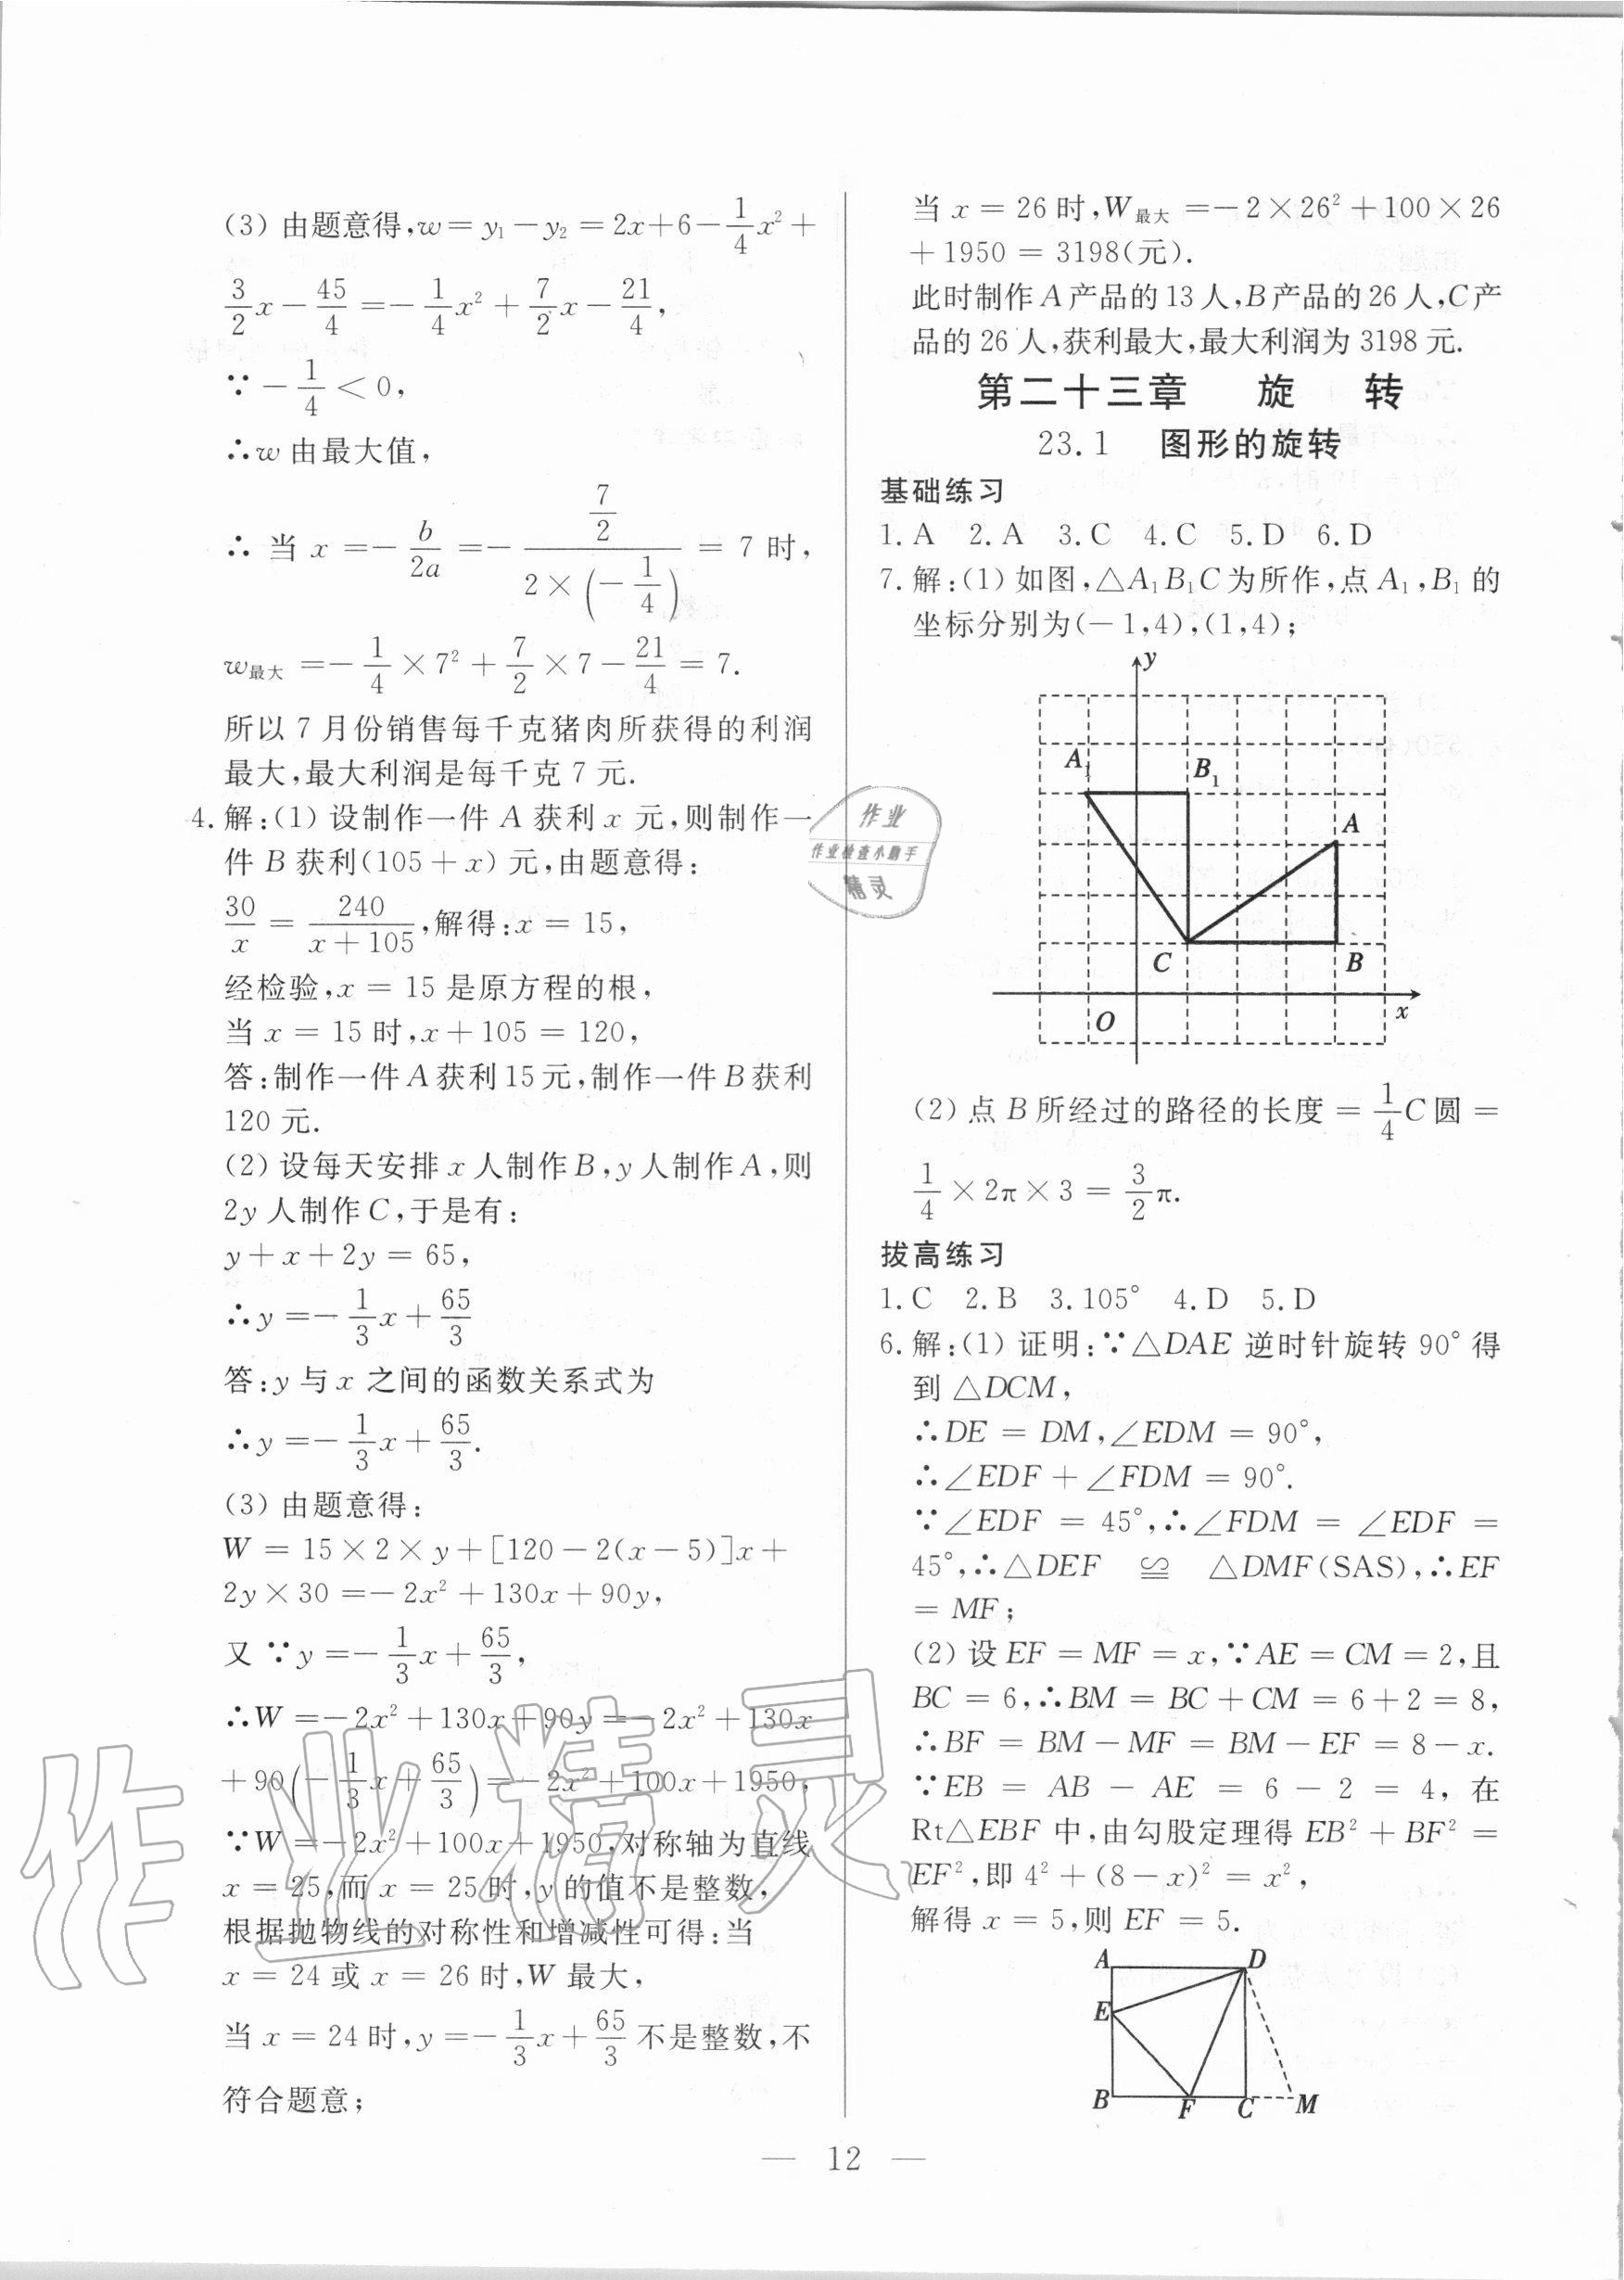 (3) 由题意得,w=y₁-y₂=2x+6-1/4x²+
3/2x-45/4=-1/4x²+7/2x-21/4,
∵-1/4<0,
∴w由最大值,
∴当x=-b/2a=-(7/2)/(2×(-1/4))=7时,
w最大=-1/4×7²+7/2×7-21/4=7.
所以7月份销售每千克猪肉所获得的利润
最大,最大利润是每千克7元.
4.解:(1) 设制作一件A获利x元,则制作一
件B获利(105+x)元,由题意得:
30/x=240/(x+105),解得:x=15,
经检验,x=15是原方程的根,
当x=15时,x+105=120,
答:制作一件A获利15元,制作一件B获利
120元.
(2) 设每天安排x人制作B,y人制作A,则
2y人制作C,于是有:
y+x+2y=65,
∴y=-1/3x+65/3
答:y与x之间的函数关系式为
∴y=-1/3x+65/3.
(3) 由题意得:
W=15×2×y+[120-2(x-5)]x+
2y×30=-2x²+130x+90y,
又∵y=-1/3x+65/3,
∴W=-2x²+130x+90y=-2x²+130x
+90(-1/3x+65/3)=-2x²+100x+1950,
∵W=-2x²+100x+1950,对称轴为直线
x=25,而x=25时,y的值不是整数,
根据抛物线的对称性和增减性可得:当
x=24或x=26时,W最大,
当x=24时,y=-1/3x+65/3不是整数,不
符合题意;
当x=26时,W最大=-2×26²+100×26
+1950=3198(元).
此时制作A产品的13人,B产品的26人,C产
品的26人,获利最大,最大利润为3198元.
第二十三章 旋 转
23.1 图形的旋转
基础练习
1.A 2.A 3.C 4.C 5.D 6.D
7.解:(1) 如图,△A₁B₁C为所作,点A₁,B₁的
坐标分别为(-1,4),(1,4);
y
A₁
B₁
A
C
B
O
x
作业
作业检查小助手
精灵
(2) 点B所经过的路径的长度=1/4C圆=
1/4×2π×3=3/2π.
拔高练习
1.C 2.B 3.105° 4.D 5.D
6.解:(1) 证明:∵△DAE逆时针旋转90°得
到△DCM,
∴DE=DM,∠EDM=90°,
∴∠EDF+∠FDM=90°.
∵∠EDF=45°,∴∠FDM=∠EDF=
45°,∴△DEF ≌ △DMF(SAS),∴EF
=MF;
(2) 设EF=MF=x,∵AE=CM=2,且
BC=6,∴BM=BC+CM=6+2=8,
∴BF=BM-MF=BM-EF=8-x.
∵EB=AB-AE=6-2=4,在
Rt△EBF中,由勾股定理得EB²+BF²=
EF²,即4²+(8-x)²=x²,
解得x=5,则EF=5.
A
D
E
B
F
C
M
作业精灵
— 12 —